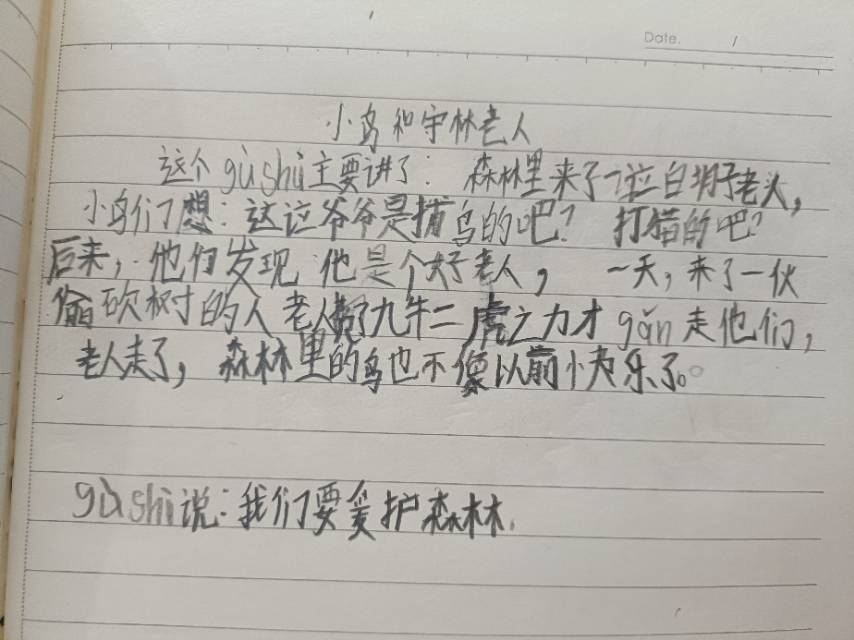 Date. /
小鸟和守林老人
这个gùshi主要讲了：森林里来了一位白胡子老头，
小鸟们想：这位爷爷是捕鸟的吧？打猎的吧？
后来，他们发现他是个好老人，一天，来了一伙
偷砍树的人老人费了九牛二虎之力才gǎn走他们，
老人走了，森林里的鸟也不像以前快乐了。
gùshi说：我们要爱护森林.